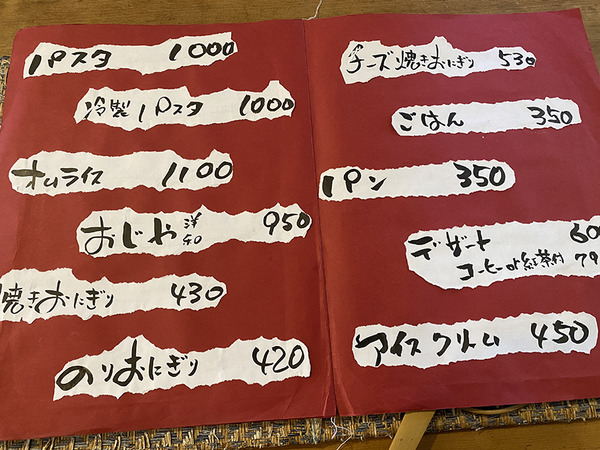 パスタ 1000
冷製パスタ 1000
オムライス 1100
おじや 洋 和 950
焼きおにぎり 430
のりおにぎり 420
チーズ焼きおにぎり 530
ごはん 350
パン 350
デザート 60
コーヒーor紅茶付 79
アイスクリーム 450